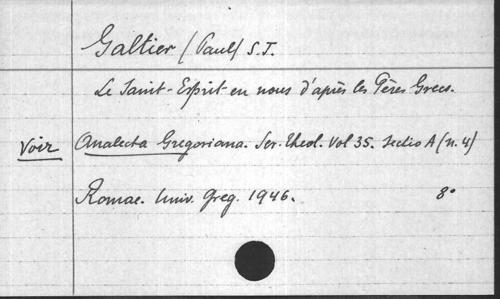 Galtier (Paul) S.J.
Le Saint-Esprit en nous d'après les Pères Grecs.
Voir Analecta Gregoriana. Ser. Theol. Vol 35. Sectio A (n. 4)
Romae. Univ. Greg. 1946. 8°